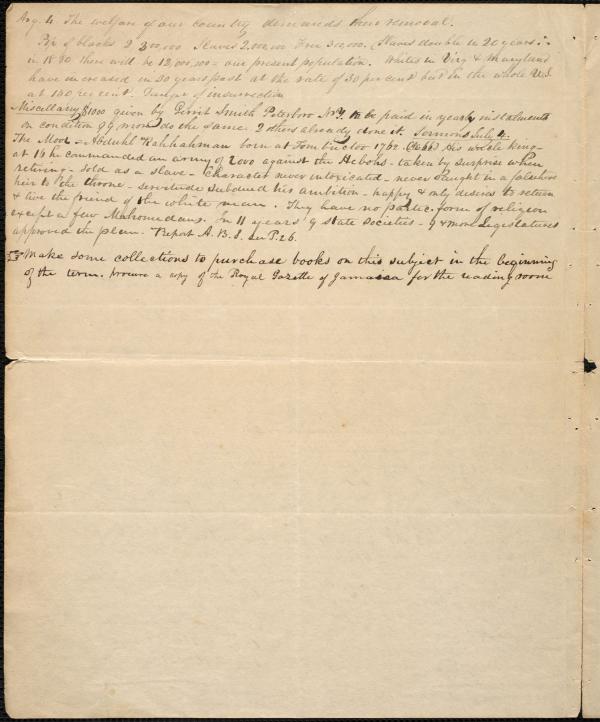 Arg. 4. The welfare of our country demands their removal.
Pop of blacks 2,300,000 Slaves 2,000,000 Free 300,000. (Slaves double in 20 years :-
in 1880 there will be 12,000,000 = our present population. Whites in Virg & Maryland
have increased in 30 years past at the rate of 30 per cent but in the whole U.S.
at 100 per cent. Danger of insurrection
Miscellany $1000 given by Gerrit Smith Peterboro N.Y. to be paid in yearly instalments
on condition 99 more do the same. 2 others already done it. Sermons July 4.
The Moor - Abduhl Rahhahman born at Tombuctoo 1762. his uncle king -
at 19 he commanded an army of 2000 against the Hebohs - taken by surprise when
retiring - Sold as a slave - Character never intoxicated - never caught in a falsehood
heir to the throne - servitude subdued his ambition - happy & only desires to return
& live the friend of the white man. They have no partic. form of religion
except a few Mahomedans. In 11 years 9 state societies - 9 & more Legislatures
approved the plan. Report A. B. S. See P. 26.
☞ Make some collections to purchase books on this subject in the beginning
of the term. procure a copy of the Royal Gazette of Jamaica for the reading room